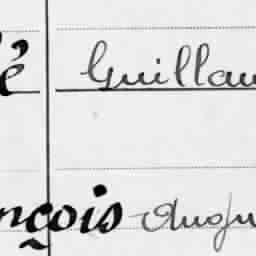 é Guillau
nçois Augu